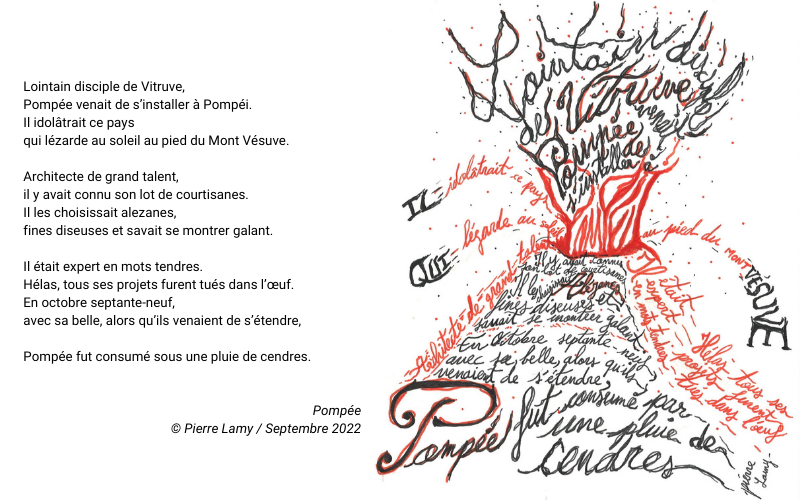 Lointain disciple de Vitruve,
Pompée venait de s'installer à Pompéi.
Il idolâtrait ce pays
qui lézarde au soleil au pied du Mont Vésuve.
Architecte de grand talent,
il y avait connu son lot de courtisanes.
Il les choisissait alezanes,
fines diseuses et savait se montrer galant.
Il était expert en mots tendres.
Hélas, tous ses projets furent tués dans l'œuf.
En octobre septante-neuf,
avec sa belle, alors qu'ils venaient de s'étendre,
Pompée fut consumé sous une pluie de cendres.
Pompée
© Pierre Lamy / Septembre 2022
Lointain du
de Vitruve
venait
Pompée de
s'installer à
IL idolâtrait ce pays
QUI lézarde au soleil
au pied du MONT VÉSUVE
Architecte de grand talent
Il y avait connu
son lot de courtisanes
Il les choisissait Alezanes
fines diseuses et
savait se montrer galant
En Octobre septante neuf
avec sa belle, alors qu'ils
venaient de s'étendre,
Il était
expert
en mots tendres
Hélas tous ses
projets furent
tués dans l'oeuf
Pompée fut consumé par
une pluie de
Cendres
pierre
Lamy